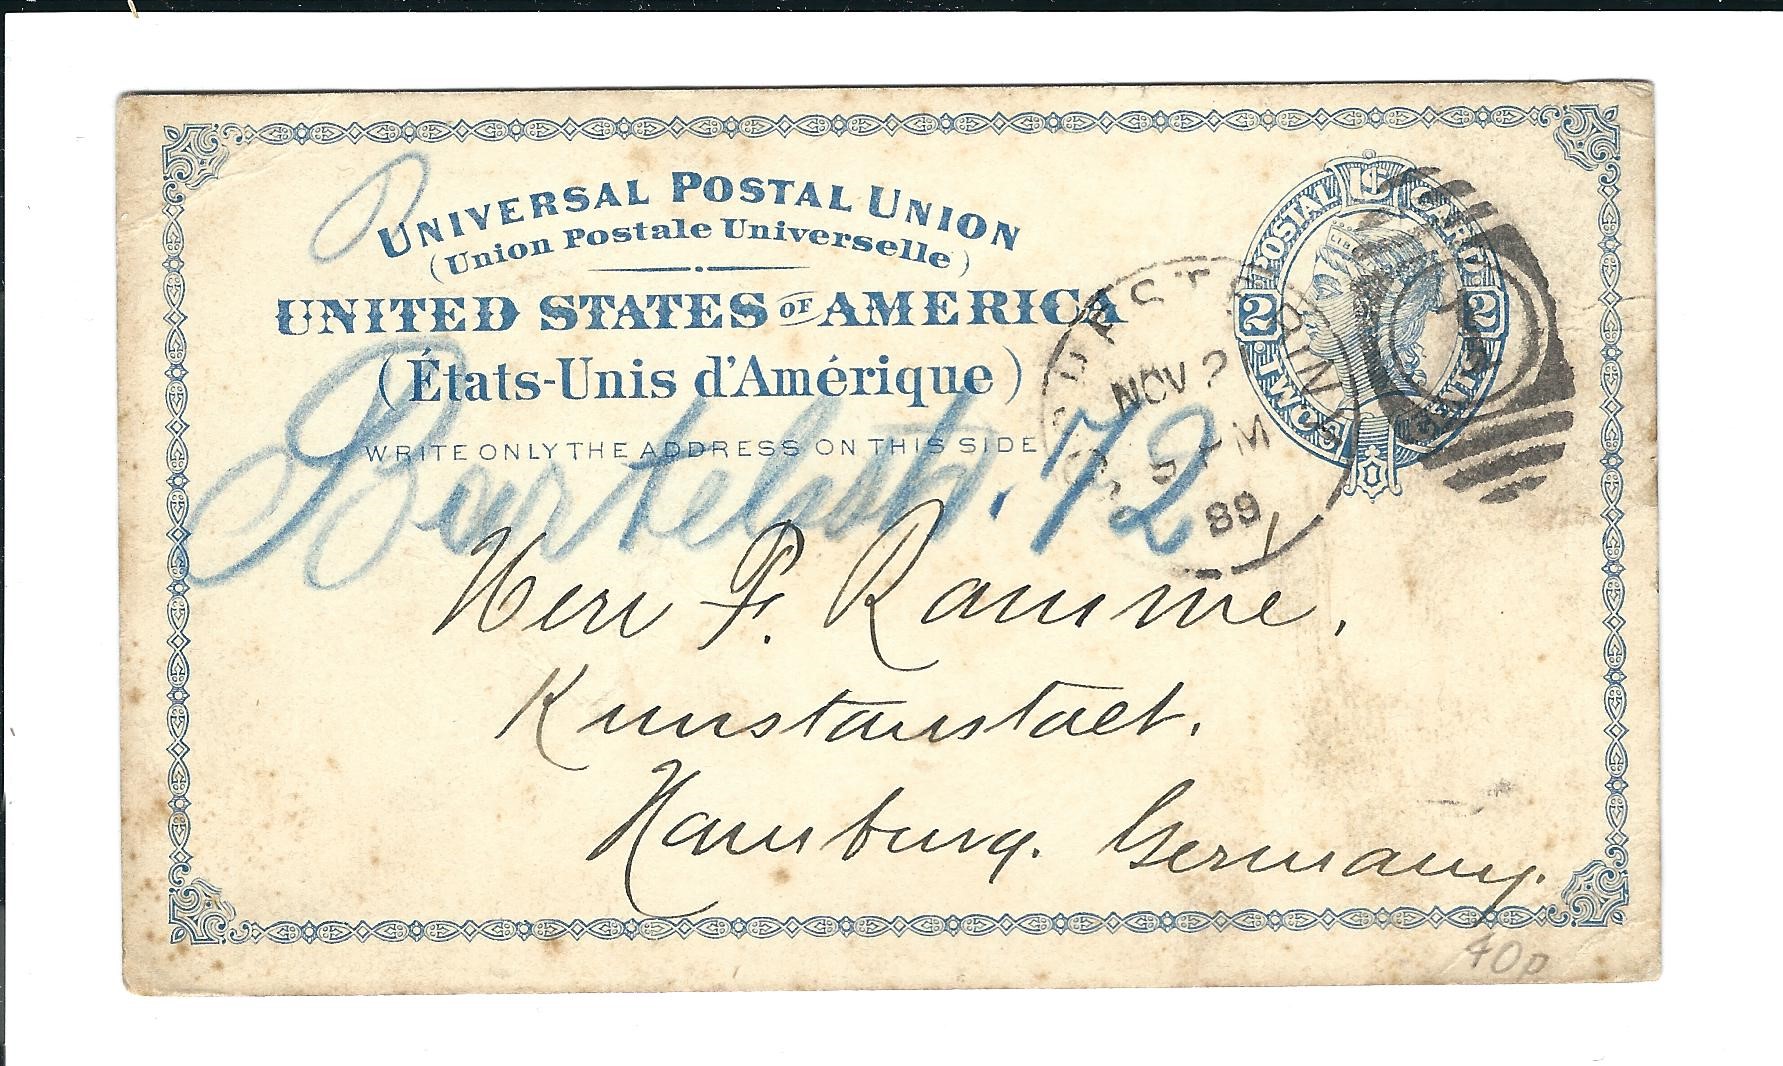 UNIVERSAL POSTAL UNION
(Union Postale Universelle)
UNITED STATES OF AMERICA
(États-Unis d'Amérique)
WRITE ONLY THE ADDRESS ON THIS SIDE
POSTAL CARD
2 2
TWO CENTS
NOV 2
M
89
Bartelsstr. 72
Herr F. Ramme.
Kunstanstalt.
Hamburg. Germany.
40p